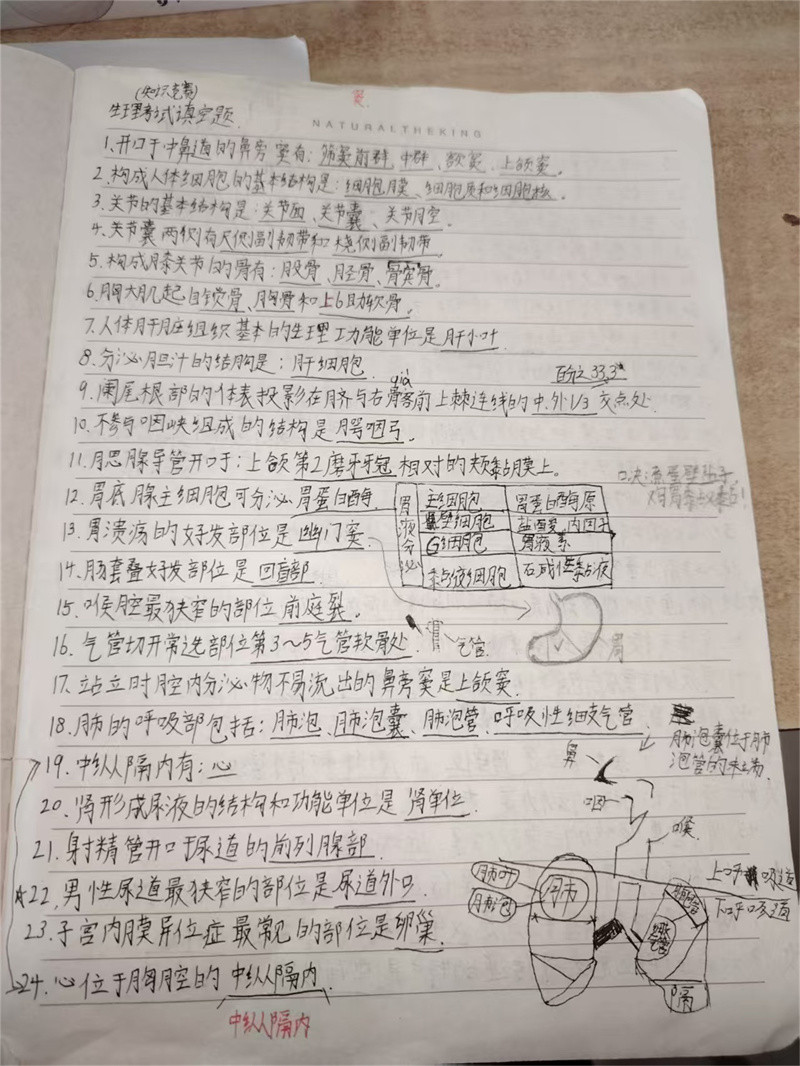 (知识竞赛)
生理考试填空题.
窦
NATURALTHEKING
1.开口于中鼻道的鼻旁窦有:筛窦前群、中群、额窦、上颌窦。
2.构成人体细胞的基本结构是:细胞膜、细胞质和细胞核。
3.关节的基本结构是:关节面、关节囊、关节腔。
4.关节囊两侧有尺侧副韧带和桡侧副韧带.
5.构成膝关节的骨有:股骨、胫骨、髌骨.
6.胸大肌起自锁骨、胸骨和上6肋软骨.
7.人体肝脏组织基本的生理功能单位是肝小叶.
8.分泌胆汁的结构是:肝细胞.
百分之33.3
qià
9.阑尾根部的体表投影在脐与右髂前上棘连线的中.外1/3交点处.
10.不参与咽峡组成的结构是腭咽弓.
11.腮腺导管开口于:上颌第2磨牙牙冠相对的颊黏膜上。
12.胃底腺主细胞可分泌胃蛋白酶.
胃液分泌
主细胞 胃蛋白酶原
壁细胞 盐酸、内因子
G细胞 胃液素
黏液细胞 石咸性黏液
13.胃溃疡的好发部位是幽门窦
14.肠套叠好发部位是回盲部.
15.喉腔最狭窄的部位前庭裂。
16.气管切开常选部位第3~5气管软骨处.
气管
胃
17.站立时腔内分泌物不易流出的鼻旁窦是上颌窦.
18.肺的呼吸部包括:肺泡、肺泡囊、肺泡管、呼吸性细支气管.
肺泡囊位于肺
泡管的末端
19.中纵隔内有:心
20.肾形成尿液的结构和功能单位是肾单位.
21.射精管开口于尿道的前列腺部.
22.男性尿道最狭窄的部位是尿道外口.
23.子宫内膜异位症最常见的部位是卵巢.
24.心位于胸腔的中纵隔内.
中纵隔内
鼻
咽
喉
上呼吸道
下呼吸道
肺叶
肺泡
肺
隔